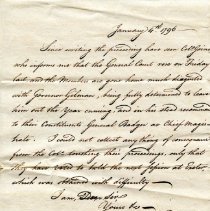 January 4th 1796
Since writing the preceding have seen Col. 
who informs me that the General Court rose on Friday
last and the Members are very much disgusted
with Governor Gilman, being fully determined to leave
him out the Year ensuing, and in his stead recommend
to their Constituents General Badger as Chief Magis-
trate. I could not collect any thing of consequence
from the Col. touching their proceedings, only that
they have voted to hold the next session at Exeter,
which was obtained with difficulty —
I am, Dear Sir,
Yours &c